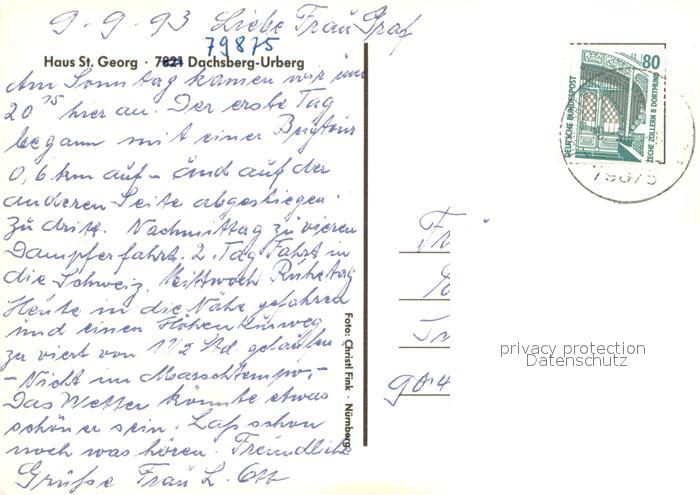 9.9.93 Liebe Frau Graf
79875
Haus St. Georg · 7821 Dachsberg-Urberg
Am Sonntag kamen wir um
20 15 hier an. Der erste Tag
begann mit einer Bergtour
0,6 km auf- und auf der
anderen Seite abgestiegen.
Zu dritt. Nachmittag zu vieren
Dampferfahrt. 2. Tag Fahrt in
die Schweiz. Mittwoch Ruhetag
Heute in die Nähe gefahren
und einen Höhenkurweg
zu viert von 1 1/2 Std gelaufen
- Nicht im Marschtempo, -
Das Wetter könnte etwas
schöner sein. Laß schon
noch was hören. Freundliche
Grüße Frau L. Ott
Foto: Christl Fink · Nürnberg
DEUTSCHE BUNDESPOST
80
ZECHE ZOLLERN II DORTMUND
79875
Fr
904
privacy protection
Datenschutz